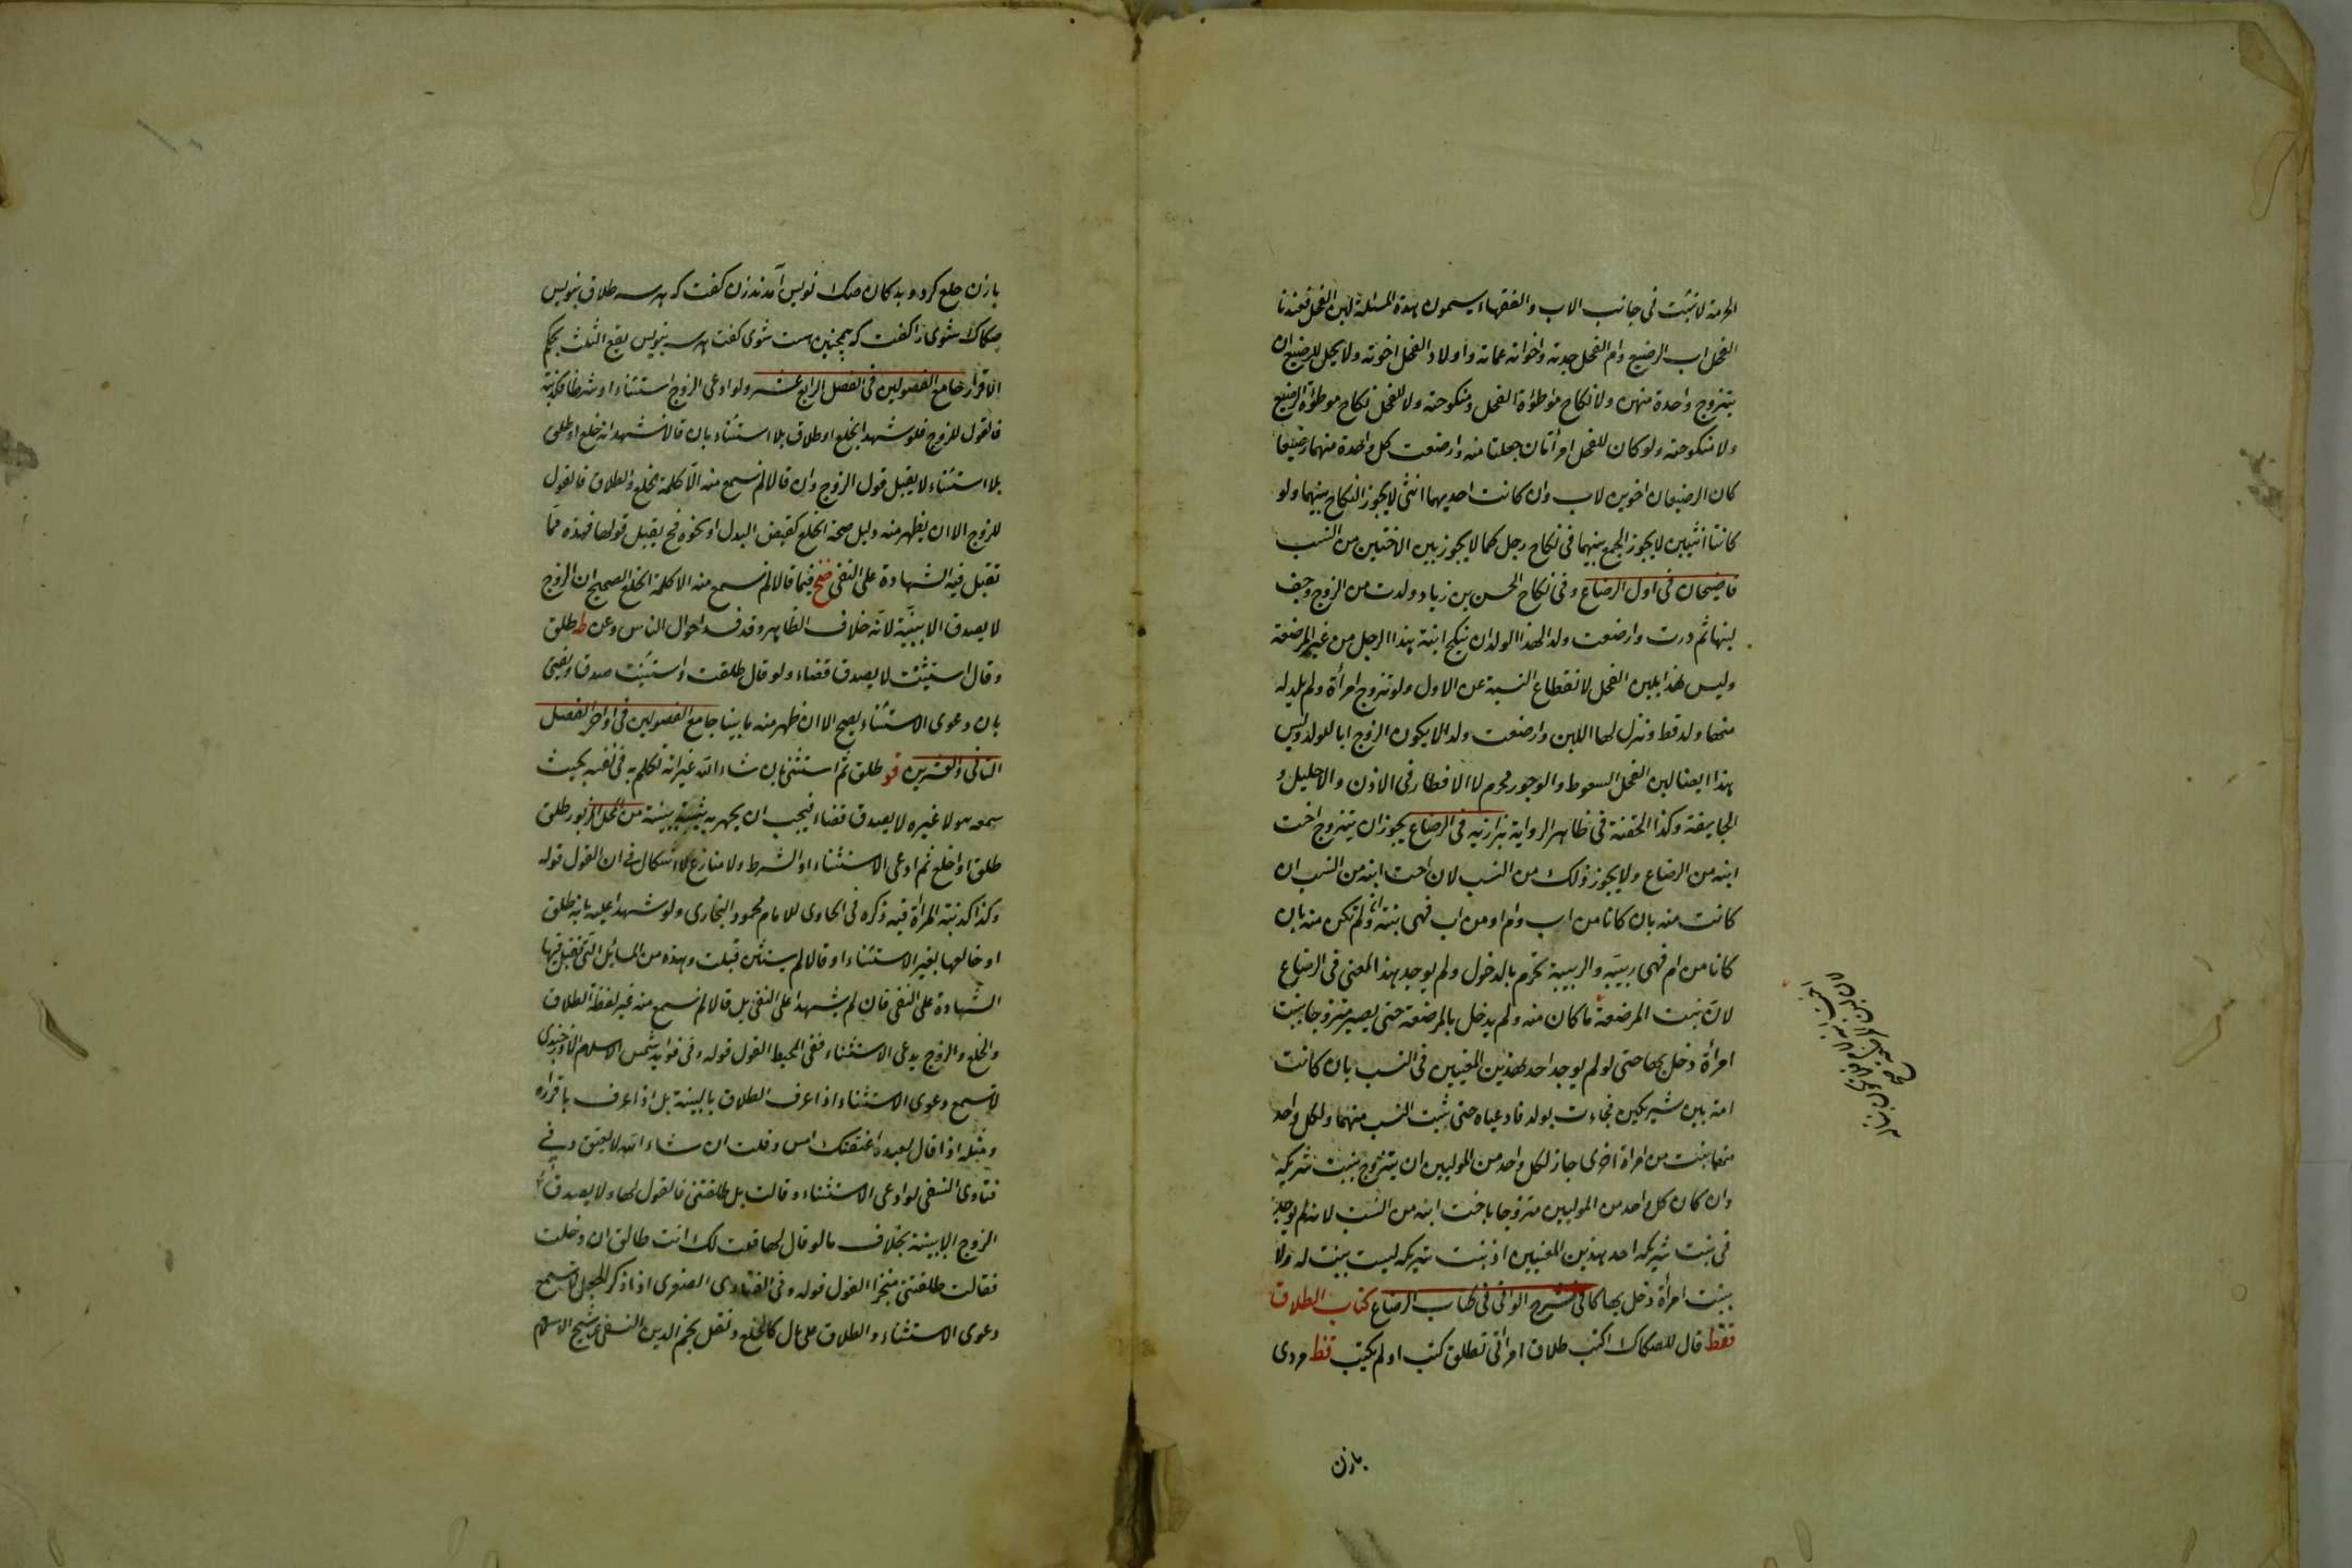 الحرمة لا تثبت في جانب الاب والفقهاء يسمون هذه المسئلة لبن الفحل فعندنا
الفحل اب الرضيع وام الفحل جدته واخواته عماته واولاد الفحل اخوته ولا يحل للرضيع ان
يتزوج واحدة منهن ولا نكاح موطؤة الفحل ومنكوحته ولا للفحل نكاح موطؤة الرضيع
ولا منكوحته ولو كان للفحل امرأتان حبلتا منه وارضعت كل واحدة منهما رضيعا
كان الرضيعان اخوين لاب وان كانت احديهما انثى لا يجوز النكاح بينهما ولو
كانتا انثيين لا يجوز الجمع بينهما في نكاح رجل كما لا يجوز بين الاختين من النسب
قاضيخان في اول الرضاع وفي نكاح الحسن بن زياد ولدت من الزوج وجف
لبنها ثم درت وارضعت ولدا لهذا الولد ان ينكح ابنة هذا الرجل من غير المرضعة
وليس هذا بلبن الفحل لانقطاع النسبة عن الاول ولو تزوج امرأة ولم يلد له
منها ولد قط ونزل لها اللبن وارضعت ولدا لا يكون الزوج ابا للولد وليس
هذا ايضا لبن الفحل السعوط والوجور محرم لا الاقطار في الاذن والاحليل و
الجايفة وكذا الحقنة في ظاهر الرواية بزازيه في الرضاع يجوز ان يتزوج اخت
ابنه من الرضاع ولا يجوز ذلك من النسب لان اخت ابنه من النسب ان
كانت منه بان كانا من اب وام او من اب فهي بنته وان لم تكن منه بان
كانا من ام فهي ربيبته والربيبة تحرم بالدخول ولم يوجد هذا المعنى في الرضاع
لان بنت المرضعة ما كان منه ولم يدخل بالمرضعة حتى يصير متزوجا بنت
امرأة دخل بها حتى لو لم يوجد احد هذين المعنيين في النسب بان كانت
امة بين شريكين فجاءت بولد فادعياه حتى ثبت النسب منهما ولكل واحد
منهما بنت من امراة اخرى جاز لكل واحد من الموليين ان يتزوج بنت شريكه
وان كان كل واحد من الموليين متزوجا باخت ابنه من النسب لانه لم يوجد
في بنت شريكه احد هذين المعنيين اذ بنت شريكه ليست بنت له ولا
بنت امرأة دخل بها كافي شرح الوافي في كتاب الرضاع كتاب الطلاق
فقط قال للصكاك اكتب طلاق امراتي تطلق كتب او لم يكتب قط مردى
بازن
بازن خلع كرد وبدكان صكاك نويس آمدند زن كفت كه سه طلاق بنويس
صكاك شوى را كفت كه همچنين هست شوى كفت سه بنويس يقع الثلث بحكم
الاقرار جامع الفصولين في الفصل الرابع عشر ولو ادعى الزوج استثناء او شرطا فكذبته
فالقول للزوج فلو شهدا بخلع او طلاق بلا استثناء بان قالا نشهد انه خلع او طلق
بلا استثناء لا يقبل قول الزوج وان قالا لم نسمع منه الا كلمة الخلع والطلاق فالقول
للزوج الا ان يظهر منه دليل صحة الخلع كقبض البدل او نحوه فح يقبل قولها فهذه مما
تقبل فيه الشهادة على النفي فخ فيما قالا لم نسمع منه الا كلمة الخلع الصحيح ان الزوج
لا يصدق الا ببينة لانه خلاف الظاهر وقد فسد احوال الناس وعن ط طلق
وقال استثنيت لا يصدق قضاء ولو قال طلقت واستثنيت صدق
بان دعوى الاستثناء يصح الا ان ظهر منه ما بينا جامع الفصولين في اواخر الفصل
الثاني والعشرين فو طلق ثم استثنى بان شاء الله غير انه تكلم به في نفسه بحيث
سمعه هو لا غيره لا يصدق قضاء فيجب ان يجهر به بينة من المحل المزبور طلق
طلق او خلع ثم ادعى الاستثناء او الشرط ولا منازع لا اشكال في ان القول قوله
وكذا كذبته المرأة فيه ذكره في الحاوي للامام محمود البخاري ولو شهدا عليه بانه طلق
او خالعها بغير الاستثناء او قالا لم يستثن قبلت وهذه من المسائل التي تقبل فيها
الشهادة على النفي فان لم يشهدا على النفي بل قالا لم نسمع منه غير لفظة الطلاق
والخلع والزوج يدعى الاستثناء ففي المحيط القول قوله وفي فوايد شمس الاسلام الاوزجندي
لا تسمع دعوى الاستثناء اذا عرف الطلاق بالبينة بل اذا عرف باقراره
ومثله اذا قال لعبده اعتقتك امس وقلت ان شاء الله لا يعتق وفي
فتاوى النسفي لو ادعى الاستثناء وقالت بل طلقتني فالقول لها ولا يصدق
الزوج الا ببينة بخلاف ما لو قال لها قلت لك انت طالق ان دخلت
فقالت طلقتني منجزا القول قوله وفي الفتاوى الصغرى اذا ذكر الجعل لا تسمع
دعوى الاستثناء والطلاق على مال كالخلع ونقل نجم الدين النسفي عن شيخ الاسلام